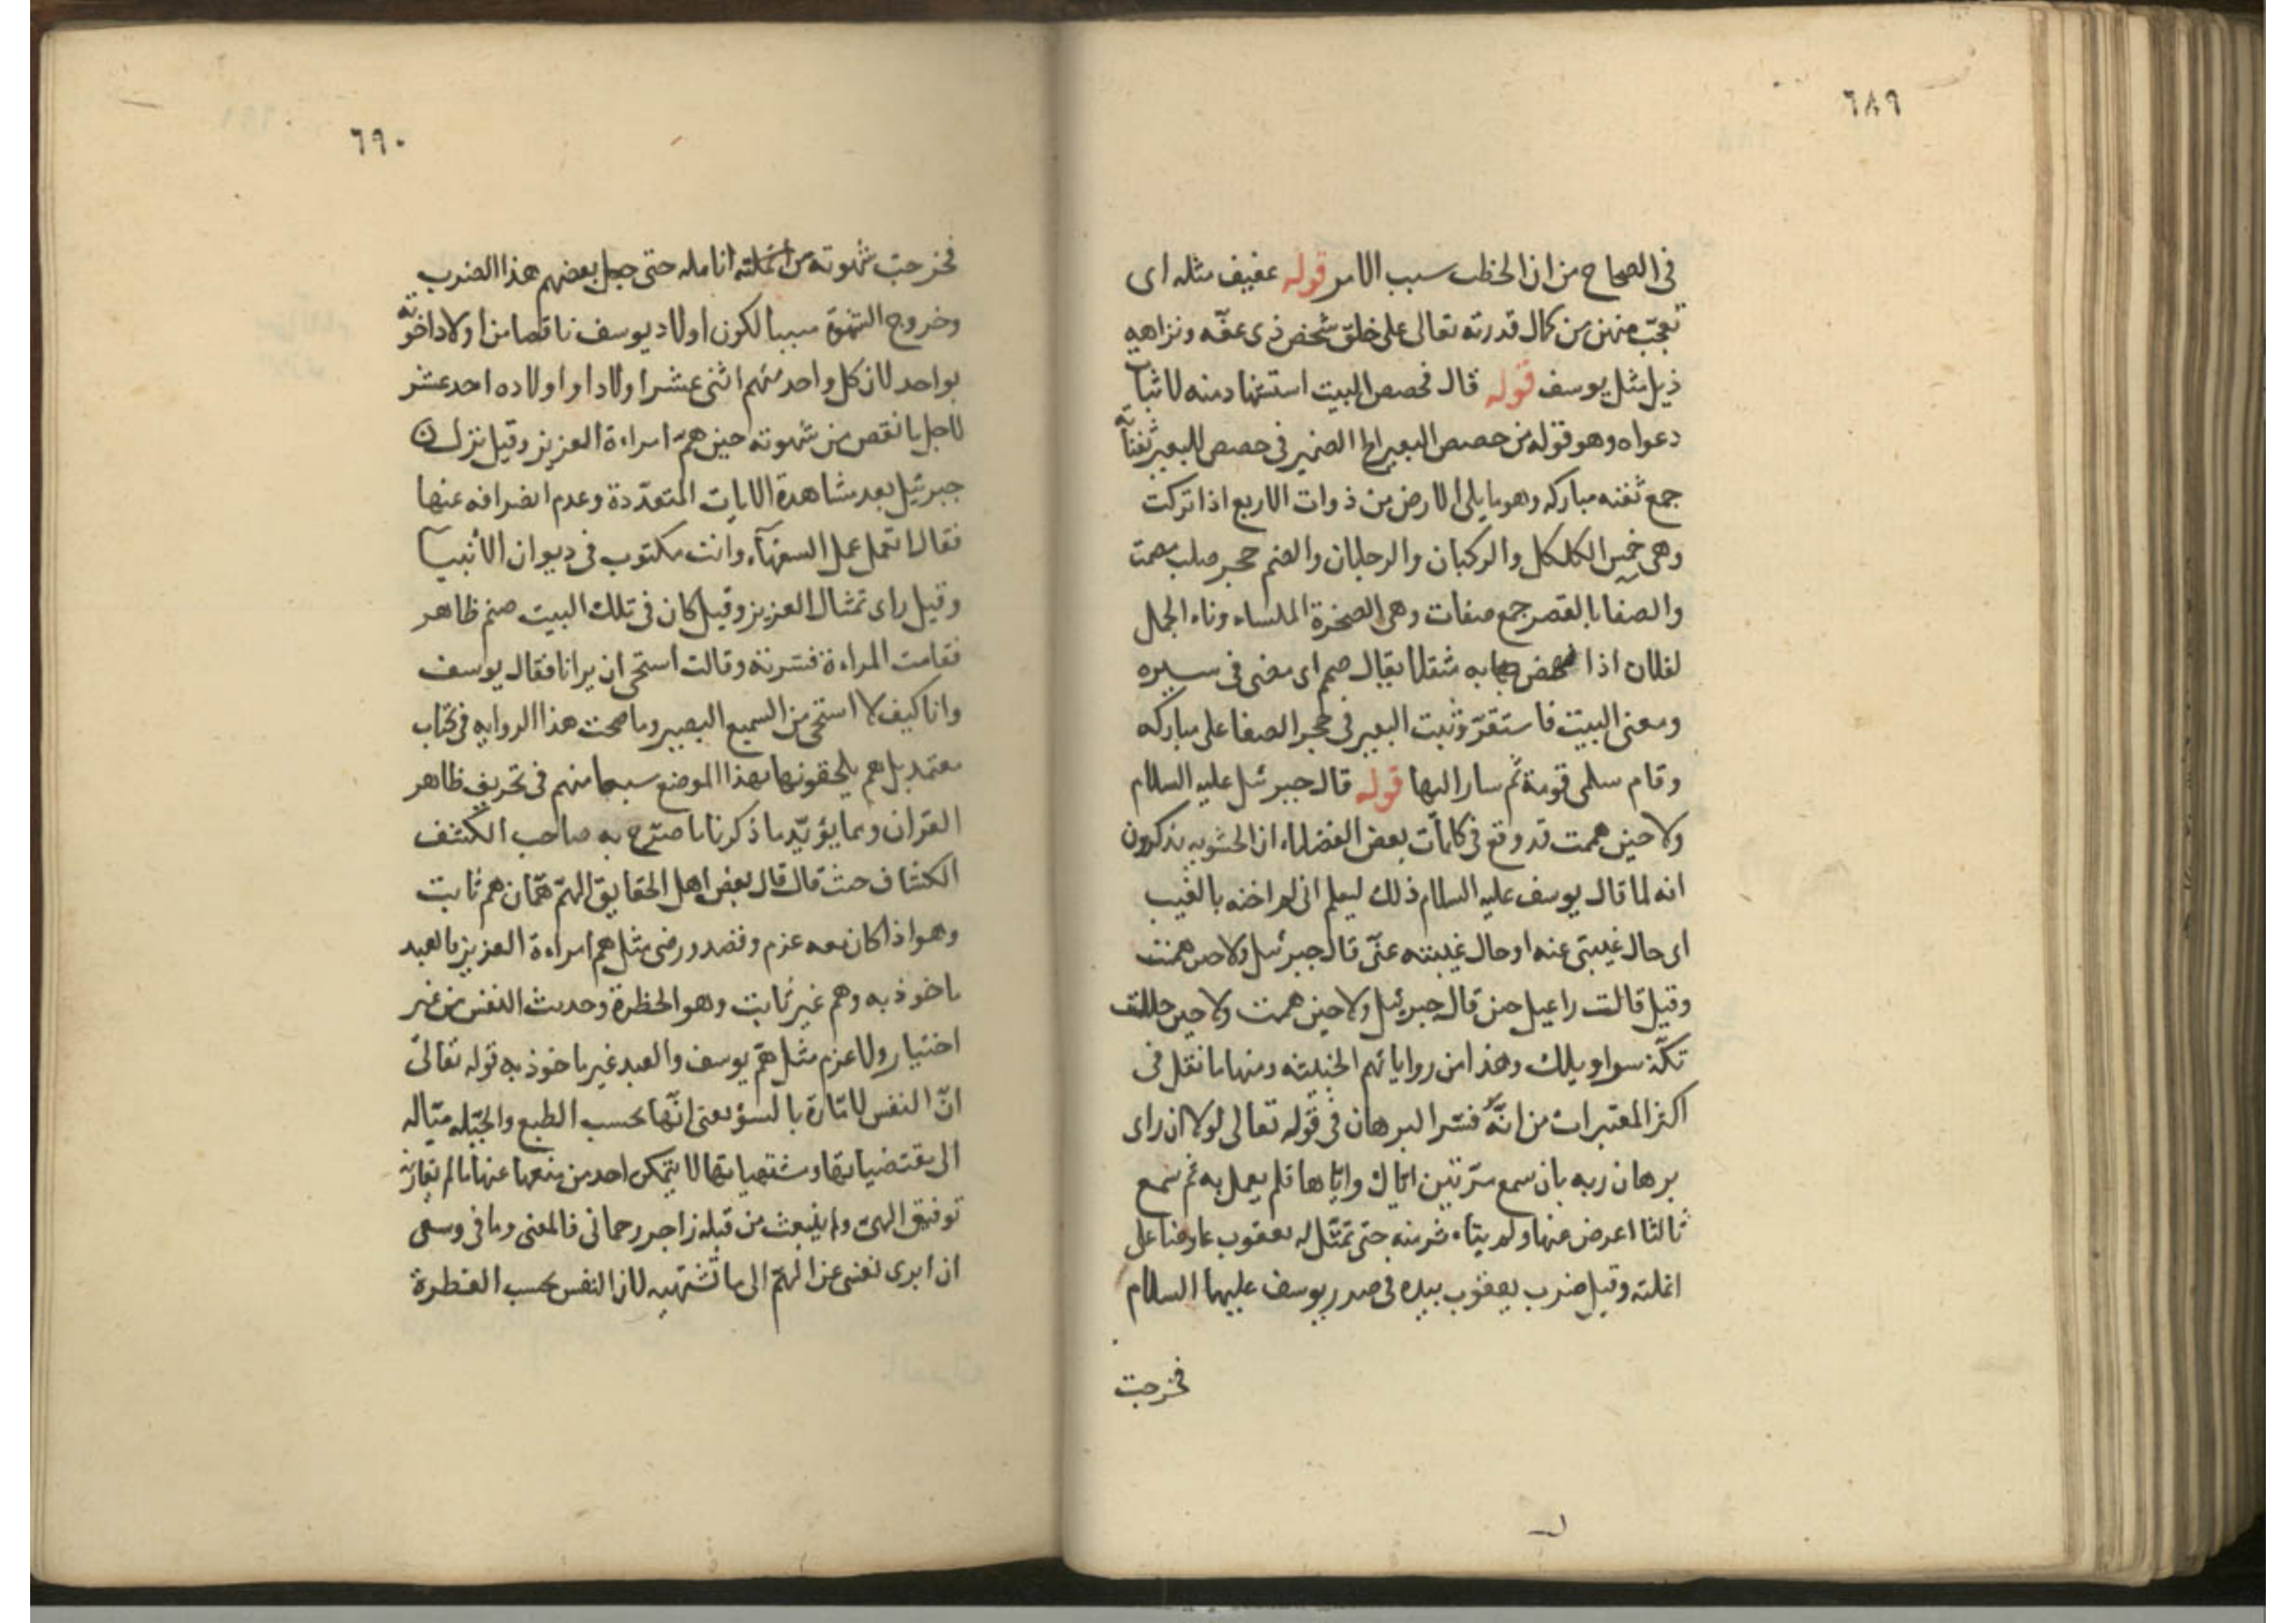 ٦٨٩
فى الصحاح من ان الخطب سبب الامر قوله عفيف مثله اى
تعجّب منهن من كمال قدرته تعالى على خلق شخص ذى عفّه ونزاهيه
ذيل مثل يوسف قوله قال فحصص البيت استشهاد منه لاثبات
دعواه وهو قوله من حصص البعير الخ الضمير فى حصص للبعير ثفناته
جمع ثفنه مباركه وهو ما يلى الارض من ذوات الاربع اذا تركت
وهى خمس الكلكل والركبان والرجلان والصم حجر صلب مصمت
والصفا بالقصر جمع صفات وهى الصخرة الملساء وناء الجمل
لفلان اذا نهض به مثقلا يقال صمم اى مضى فى سيره
ومعنى البيت فاستقرّ وثبت البعير فى حجر الصفا على مباركه
وقام سلمى قومة ثم سار اليها قوله قال جبرئيل عليه السلام
ولا حين هممت قد وقع فى كلمات بعض الفضلاء ان الحشويه يذكرون
انه لما قال يوسف عليه السلام ذلك ليعلم انى لم اخنه بالغيب
اى حال غيبتى عنه او حال غيبته عنّى قال جبرئيل ولا حين هممت
وقيل قالت راعيل حين قال جبرئيل ولا حين هممت ولا حين حللت
تكّة سراويلك وهذا من رواياتهم الخبيثه ومنها ما نقل فى
اكثر المعتبرات من انّه فسّر البرهان فى قوله تعالى لولا ان راى
برهان ربه بان سمع مرّتين ايّاك وايّاها فلم يعمل به ثم سمع
ثالثا اعرض عنها ولم يتاء ثر منه حتى تمثّل له يعقوب عاضا على
انملته وقيل ضرب يعقوب بيده فى صدر يوسف عليهما السلام
فخرجت
٦٩٠
فخرجت شهوته من انامله حتى جعل بعضهم هذا الضرب
وخروج الشهوة سببا لكون اولاد يوسف ناقصا من اولاد اخوته
بواحد لان كل واحد منهم اثنى عشر اولادا واولاده احد عشر
لاجل ما نقص من شهوته حين همّ امراءة العزيز وقيل نزل
جبرئيل بعد مشاهدة الايات المتعدّدة وعدم انصرافه عنها
فقال اتعمل عمل السفهآء وانت مكتوب فى ديوان الأنبيآ
وقيل راى تمثال العزيز وقيل كان فى تلك البيت صنم ظاهر
فقامت المراءة فسترته وقالت استحى ان يرانا فقال يوسف
وانا كيف لا استحى من السميع البصير وما صحت هذا الروايه فى كتاب
معتمد بل هم يلحقونها بهذا الموضع سيما منهم فى تحريف ظاهر
القران ومما يؤيّد ما ذكرنا ما صرّح به صاحب الكشف
الكشاف حيث قال قال بعض اهل الحقايق الهمّ همّان هم ثابت
وهو اذا كان معه عزم وقصد ورضى مثل هم امراءة العزيز فالعبد
ماخوذ به وهم غير ثابت وهو الخطرة وحديث النفس من غير
اختيار ولا عزم مثل همّ يوسف والعبد غير ماخوذ به قوله تعالىّ
انّ النفس لامّارة بالسؤ يعنى انّها بحسب الطبع والجبّله ميّاله
الى مقتضياتها ومشتهياتها لا يتمكن احد من منعها عنها ما لم تقارنه
توفيق الهىّ ولم ينبعث من قبله زاجر رحمانى فالمعنى وما فى وسعى
ان ابرى نفسى عن الهمّ الى ما تشتهيه لان النفس بحسب الفطرة